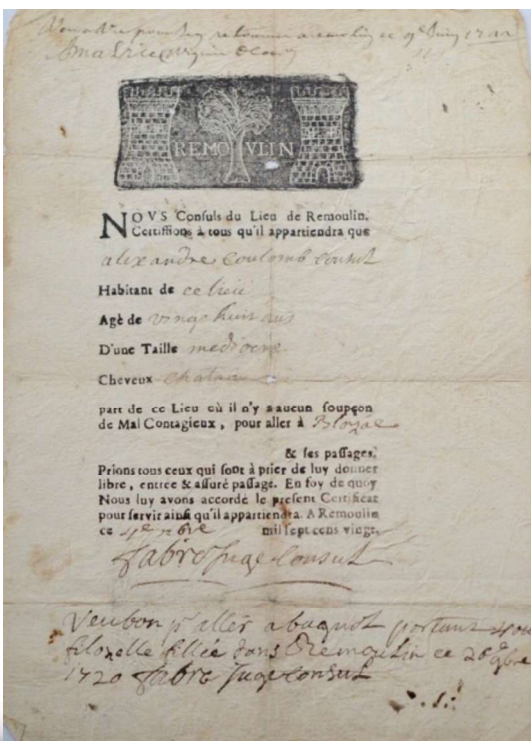 REMO VLIN
NOVS Consuls du Lieu de Remoulin,
Certiffions à tous qu'il appartiendra que
alexandre coulomb consul
Habitant de ce lieu
Agè de vingt huit ans
D'une Taille mediocre
Cheveux chatain
part de ce Lieu où il n'y a aucun soupçon
de Mal Contagieux, pour aller à Blozac
& ses passages,
Prions tous ceux qui sont à prier de luy donner
libre, entrée & assuré passage. En foy de quoy
Nous luy avons accordé le present Certificat
pour servir ainsi qu'il appartiendra. A Remoulin
ce mil sept cens vingt.
fabre juge Consul
Veu bon pr aller a portant
dans Remoulin ce
1720 fabre juge Consul